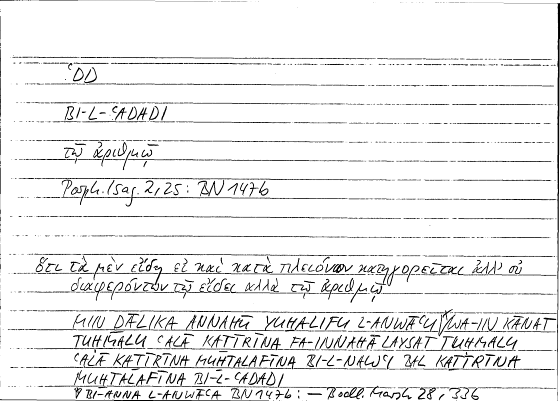 ʿDD
BI-L-ʿADADI
τῷ ἀριθμῷ
Porph. Isag. 2,25: BN 147b
ὅτι τὰ μὲν εἴδη εἰ καὶ κατὰ πλειόνων κατηγορεῖται ἀλλ' οὐ
διαφερόντων τῷ εἴδει ἀλλὰ τῷ ἀριθμῷ
MIN ḎĀLIKA ANNAHŪ YUḪĀLIFU L-ANWĀʿU WA-IN KĀNAT
TUḤMALU ʿALĀ KAṮĪRĪNA FA-INNAHĀ LAYSAT TUḤMALU
ʿALĀ KAṮĪRĪNA MUḪTALIFĪNA BI-L-NAWʿI BAL KAṮĪRĪNA
MUḪTALIFĪNA BI-L-ʿADADI
BI-ANNA L-ANWĀʿA BN 147b: — Bodl. Marsh 28, 336